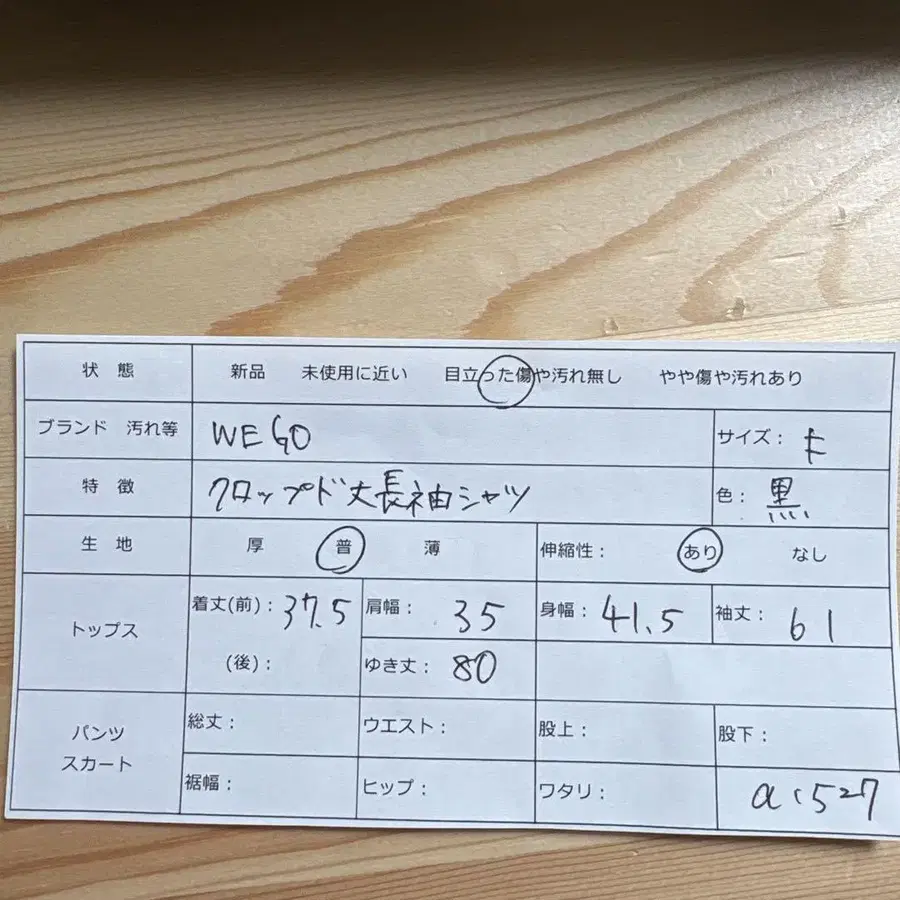 状 態 新品 未使用に近い 目立った傷や汚れ無し やや傷や汚れあり
ブランド 汚れ等 WEGO サイズ: F
特 徴 クロップド丈長袖シャツ 色: 黒
生 地 厚 普 薄 伸縮性: あり なし
トップス 着丈(前): 37.5 肩幅: 35 身幅: 41.5 袖丈: 61
(後): ゆき丈: 80
パンツ スカート 総丈: ウエスト: 股上: 股下:
裾幅: ヒップ: ワタリ: